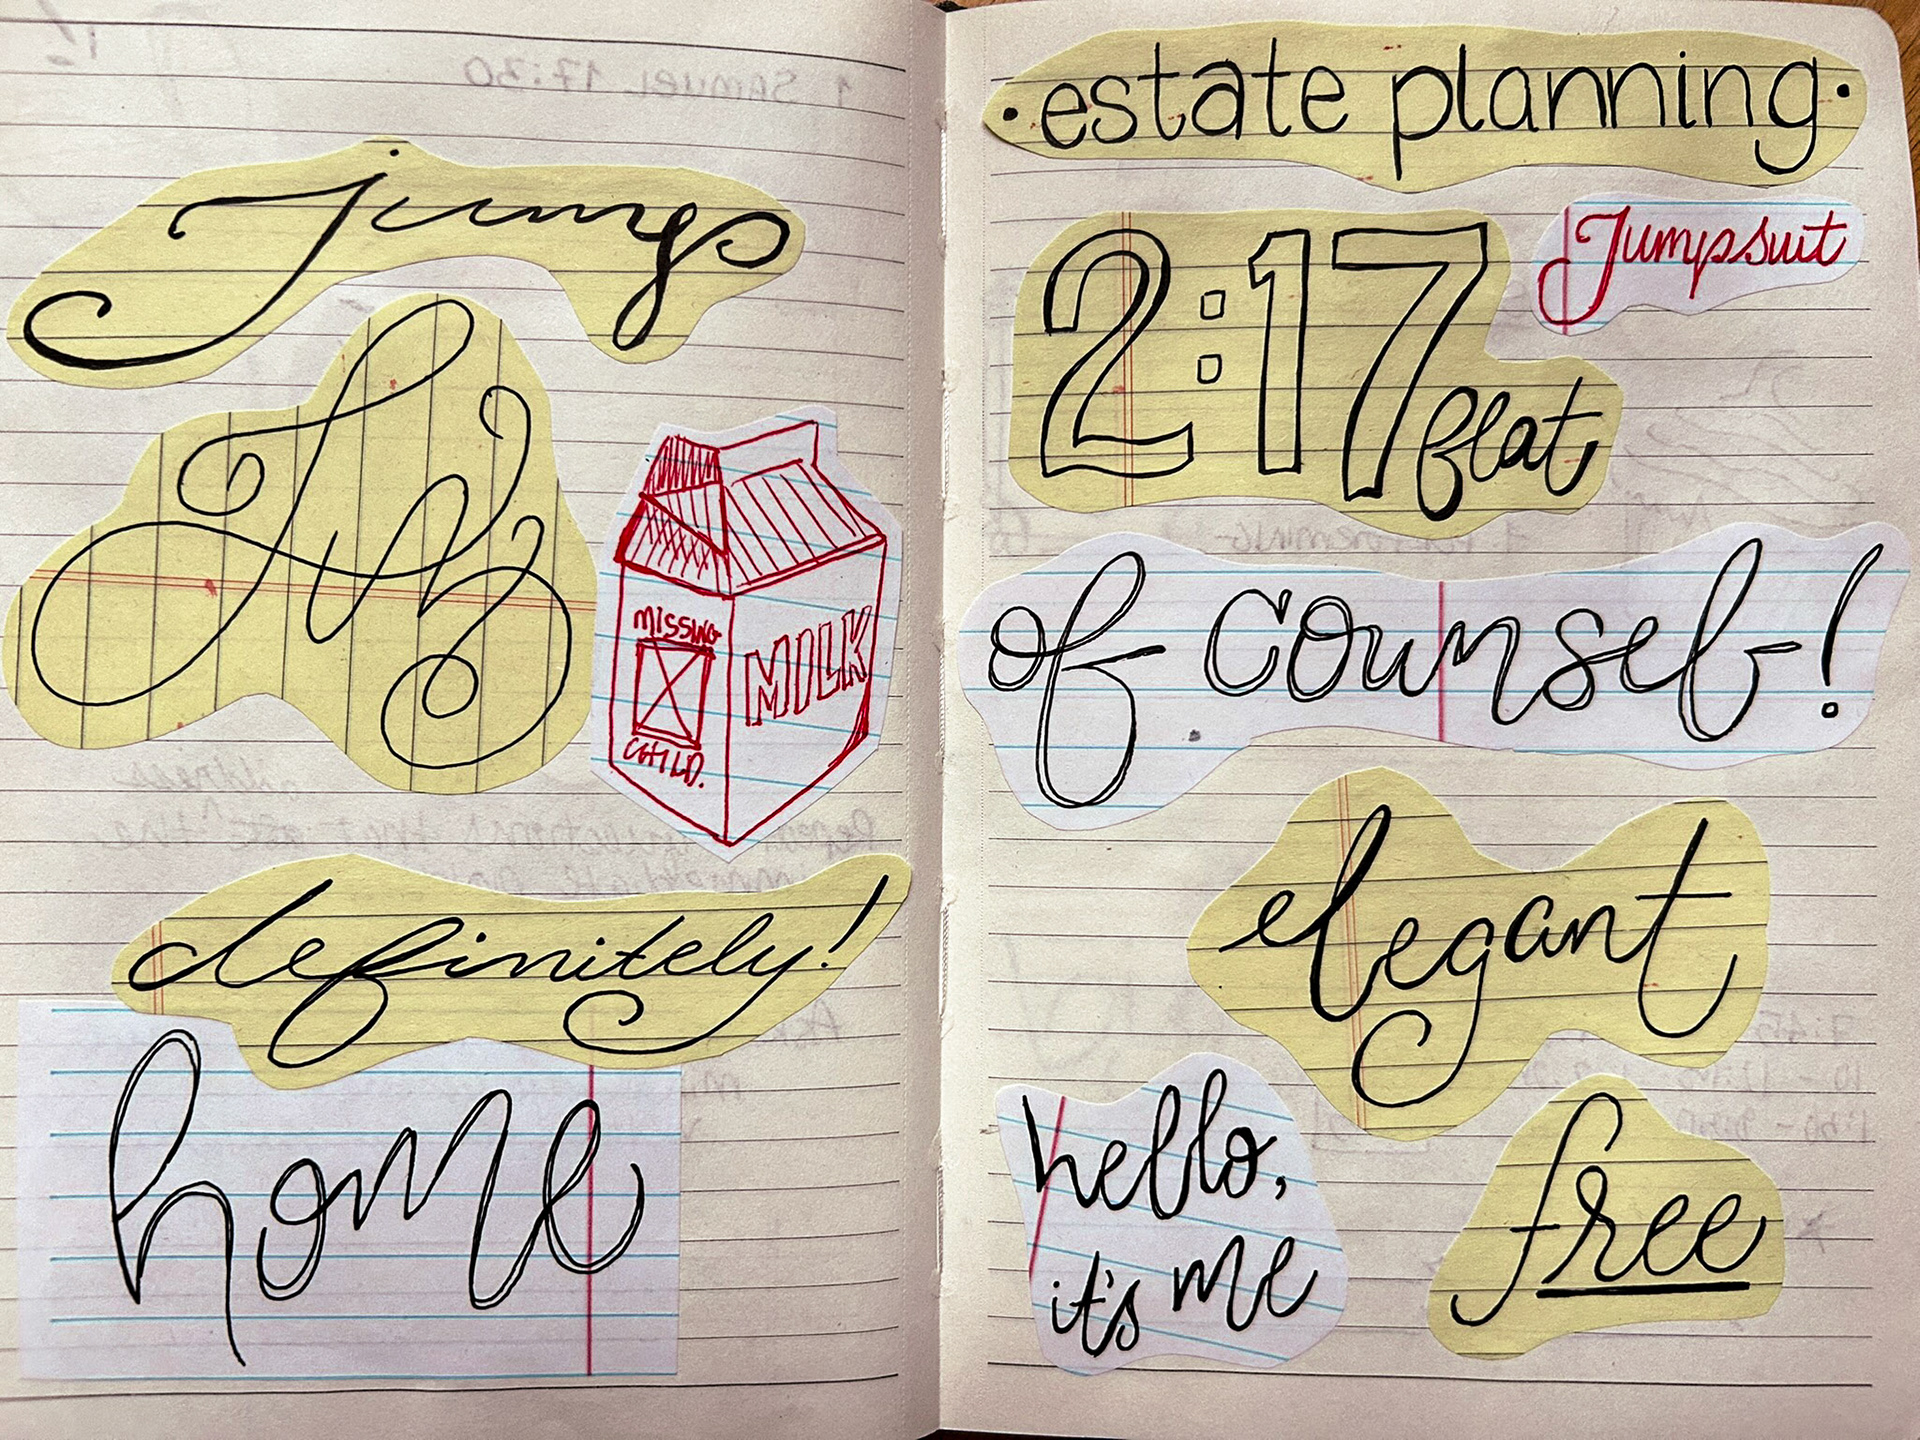 1 Samuel 17:30
jump
MISSING
CHILD.
MILK
definitely!
home
• estate planning •
2:17
flat
Jumpsuit
of counsel!
elegant
hello,
it's me
free